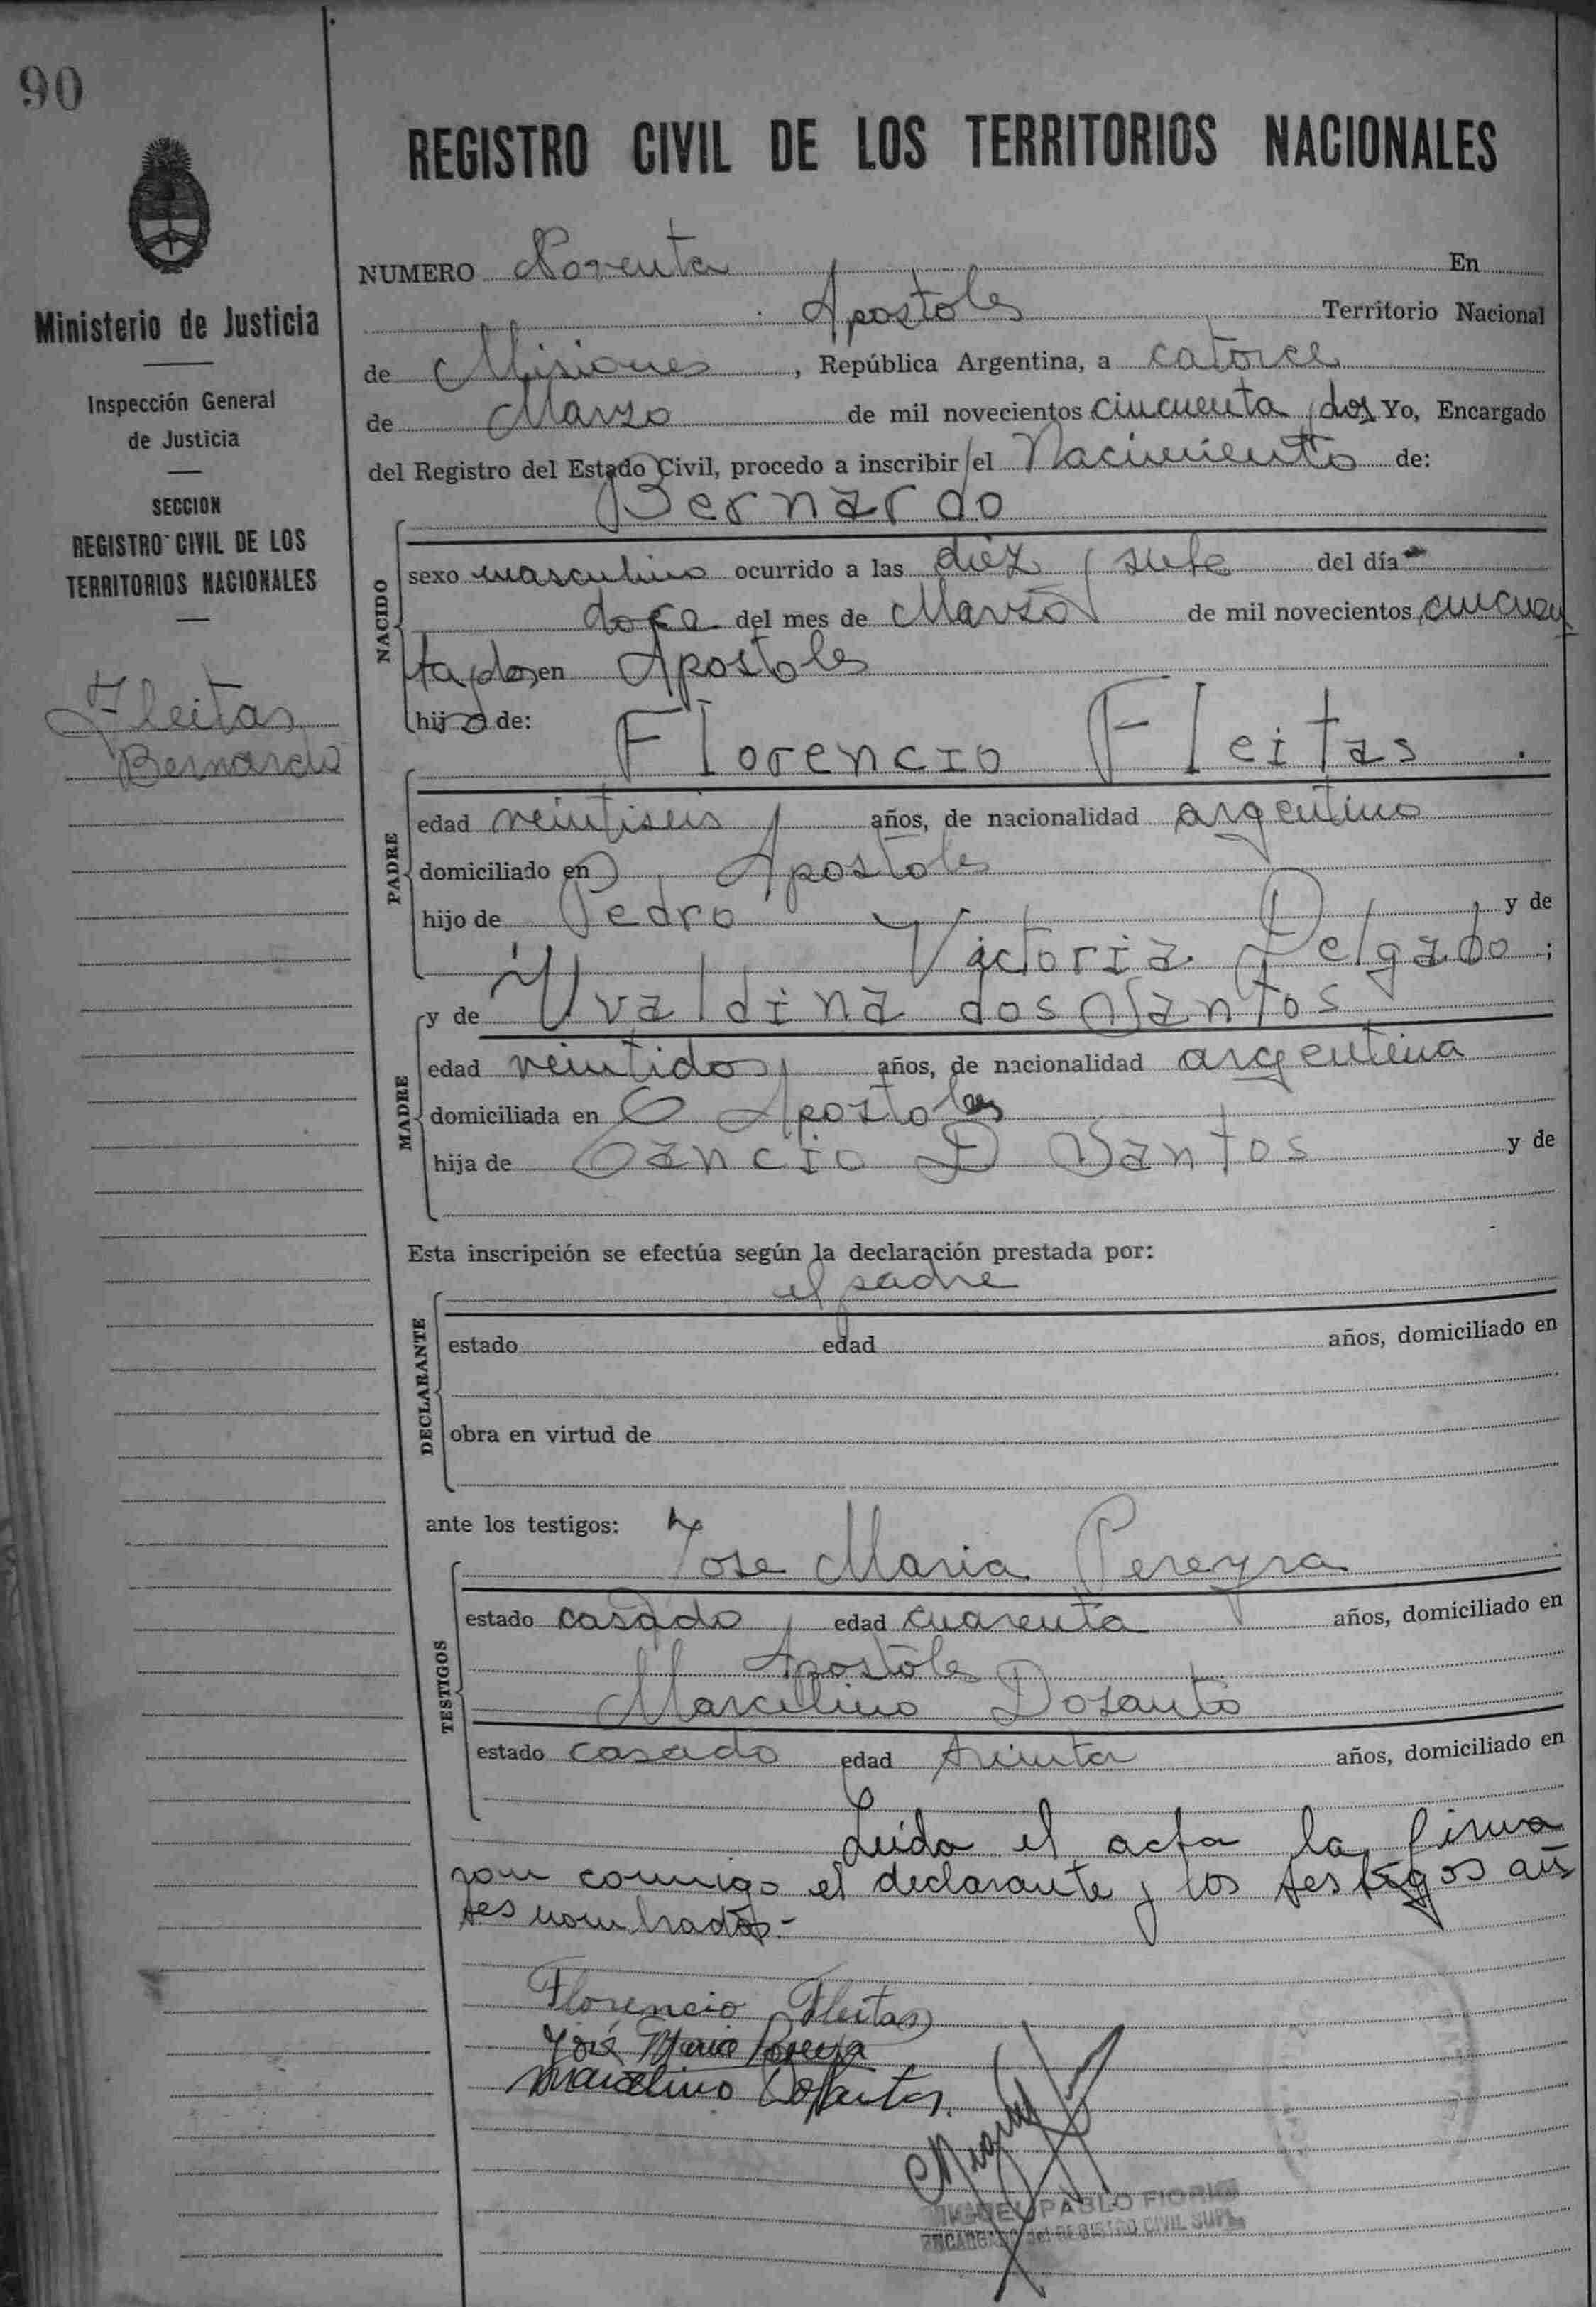 90
REGISTRO CIVIL DE LOS TERRITORIOS NACIONALES
Ministerio de Justicia
Inspección General
de Justicia
SECCION
REGISTRO CIVIL DE LOS
TERRITORIOS NACIONALES
Fleitas
Bernardo
NUMERO Noventa En
Apostoles Territorio Nacional
de Misiones, República Argentina, a catorce
de Marzo de mil novecientos cincuenta y dos Yo, Encargado
del Registro del Estado Civil, procedo a inscribir el Nacimiento de:
Bernardo
NACIDO
sexo masculino ocurrido a las diez y siete del día
doce del mes de Marzo de mil novecientos cincuen
ta y dos en Apostoles
hijo de:
Florencio Fleitas
PADRE
edad veintiseis años, de nacionalidad argentino
domiciliado en Apostoles
hijo de Pedro y de
Victoria Delgado;
y de Uvaldina dos Santos
MADRE
edad veintidos años, de nacionalidad argentina
domiciliada en Apostoles
hija de Cancio D Santos y de
Esta inscripción se efectúa según la declaración prestada por:
el padre
DECLARANTE
estado edad años, domiciliado en
obra en virtud de
ante los testigos:
Jose Maria Pereyra
TESTIGOS
estado casado edad cuarenta años, domiciliado en
Apostoles
Marcelino Dosanto
estado casado edad treinta años, domiciliado en
Leida el acta la firma
ron conmigo el declarante y los testigos an
tes nombrados.-
Florencio Fleitas
José Maria Pereyra
Marcelino Dosantos.
MIGUEL PABLO FIORI
ENCARGADO del REGISTRO CIVIL SUPL.